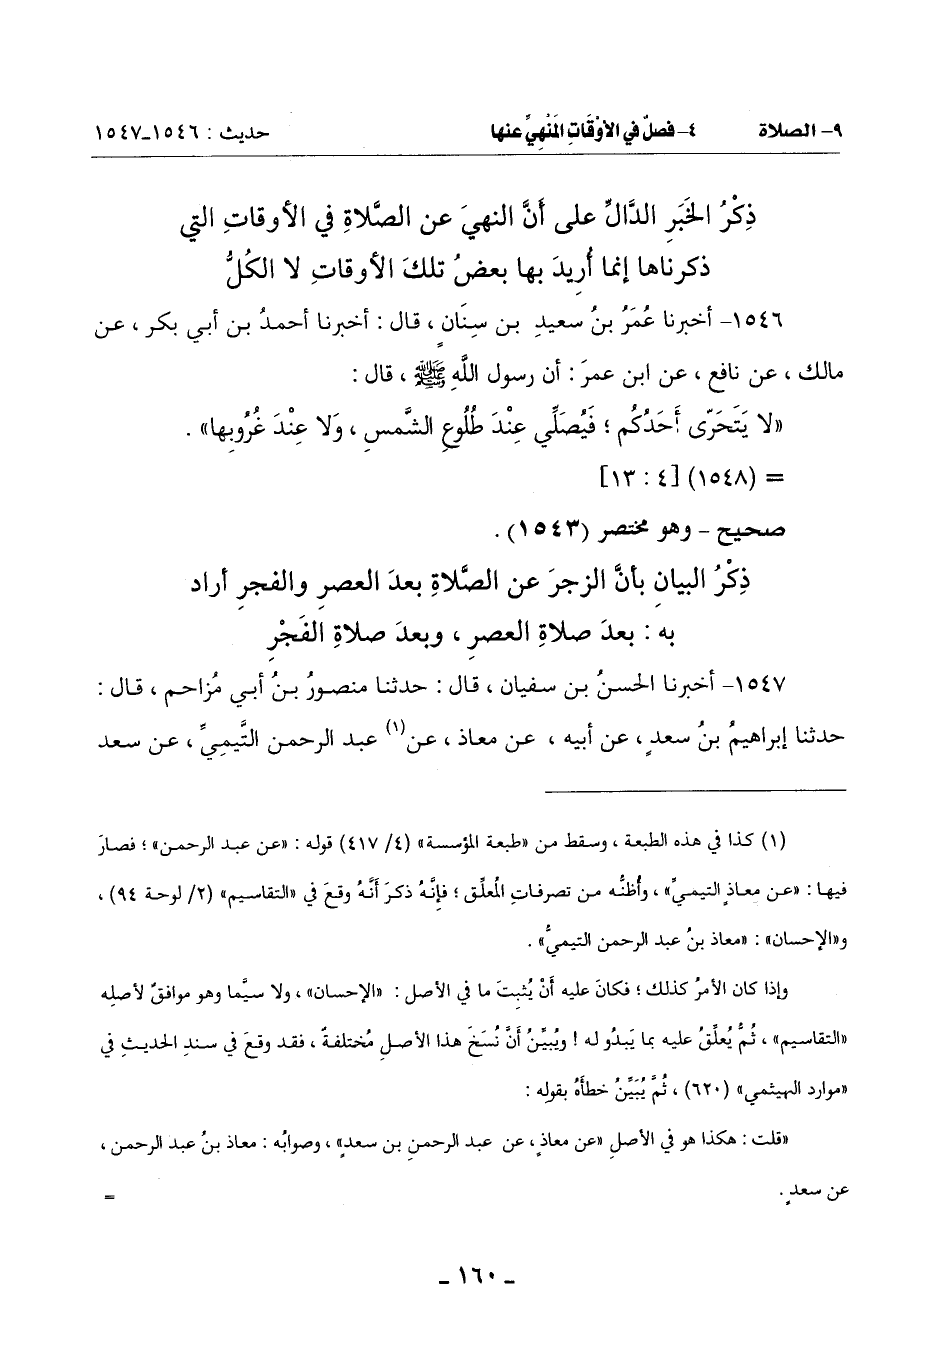 ٩- الصلاة ٤- فصلٌ في الأوْقَاتِ المَنْهِيِّ عنها حديث : ١٥٤٦-١٥٤٧
ذِكْرُ الخَبَرِ الدَّالِّ على أَنَّ النهيَ عن الصَّلاةِ في الأوقاتِ التي
ذكرناها إنما أُرِيدَ بها بعضُ تلكَ الأوقاتِ لا الكُلُّ
١٥٤٦- أخبرنا عُمَرُ بنُ سعيدِ بن سِنَانٍ ، قال : أخبرنا أحمدُ بن أبي بكر ، عن
مالك ، عن نافع ، عن ابن عمرَ : أن رسول اللَّهِ ﷺ ، قال :
«لا يَتَحَرّى أَحَدُكُم ؛ فَيُصَلِّي عِنْدَ طُلُوعِ الشَّمسِ ، وَلا عِنْدَ غُرُوبِها» .
= (١٥٤٨) [٤ : ١٣]
صحيح - وهو مختصر (١٥٤٣) .
ذِكْرُ البيانِ بأنَّ الزجرَ عن الصَّلاةِ بعدَ العصرِ والفجرِ أراد
به : بعدَ صلاةِ العصرِ ، وبعدَ صلاةِ الفَجْرِ
١٥٤٧- أخبرنا الحسنُ بن سفيان ، قال : حدثنا منصورُ بنُ أبي مُزاحم ، قال :
حدثنا إبراهيمُ بنُ سعدٍ ، عن أبيه ، عن معاذ ، عن(١) عبد الرحمن التَّيمِيِّ ، عن سعد
(١) كذا في هذه الطبعة ، وسقط من «طبعة المؤسسة» (٤/ ٤١٧) قوله : «عن عبد الرحمن» ؛ فصارَ
فيها : «عن معاذٍ التيميِّ» ، وأظنُّه من تصرفاتِ المُعلِّق ؛ فإنَّهُ ذكرَ أنَّهُ وقعَ في «التقاسيم» (٢/ لوحة ٩٤) ،
و«الإحسان» : «معاذ بنُ عبد الرحمن التيميُّ» .
وإذا كان الأمرُ كذلك ؛ فكانَ عليه أنْ يُثبِتَ ما في الأصل : «الإحسان» ، ولا سيَّما وهو موافقٌ لأصلِه
«التقاسيم» ، ثُمُّ يُعلِّقُ عليه بما يَبدُو له ! ويُبيِّنُ أنَّ نُسَخَ هذا الأصلِ مُختلفةٌ ، فقد وقعَ في سندِ الحديثِ في
«موارد الهيثمي» (٦٢٠) ، ثُمَّ يُبَيِّنُ خطأهُ بقولِه :
«قلت : هكذا هو في الأصلِ «عن معاذٍ ، عن عبد الرحمنِ بن سعد» ، وصوابُه : معاذ بنُ عبد الرحمن ،
عن سعدٍ . =
- ١٦٠ -